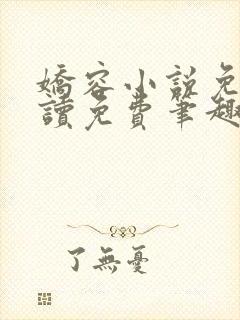 嬌容小說免
讀免費筆趣
了無憂